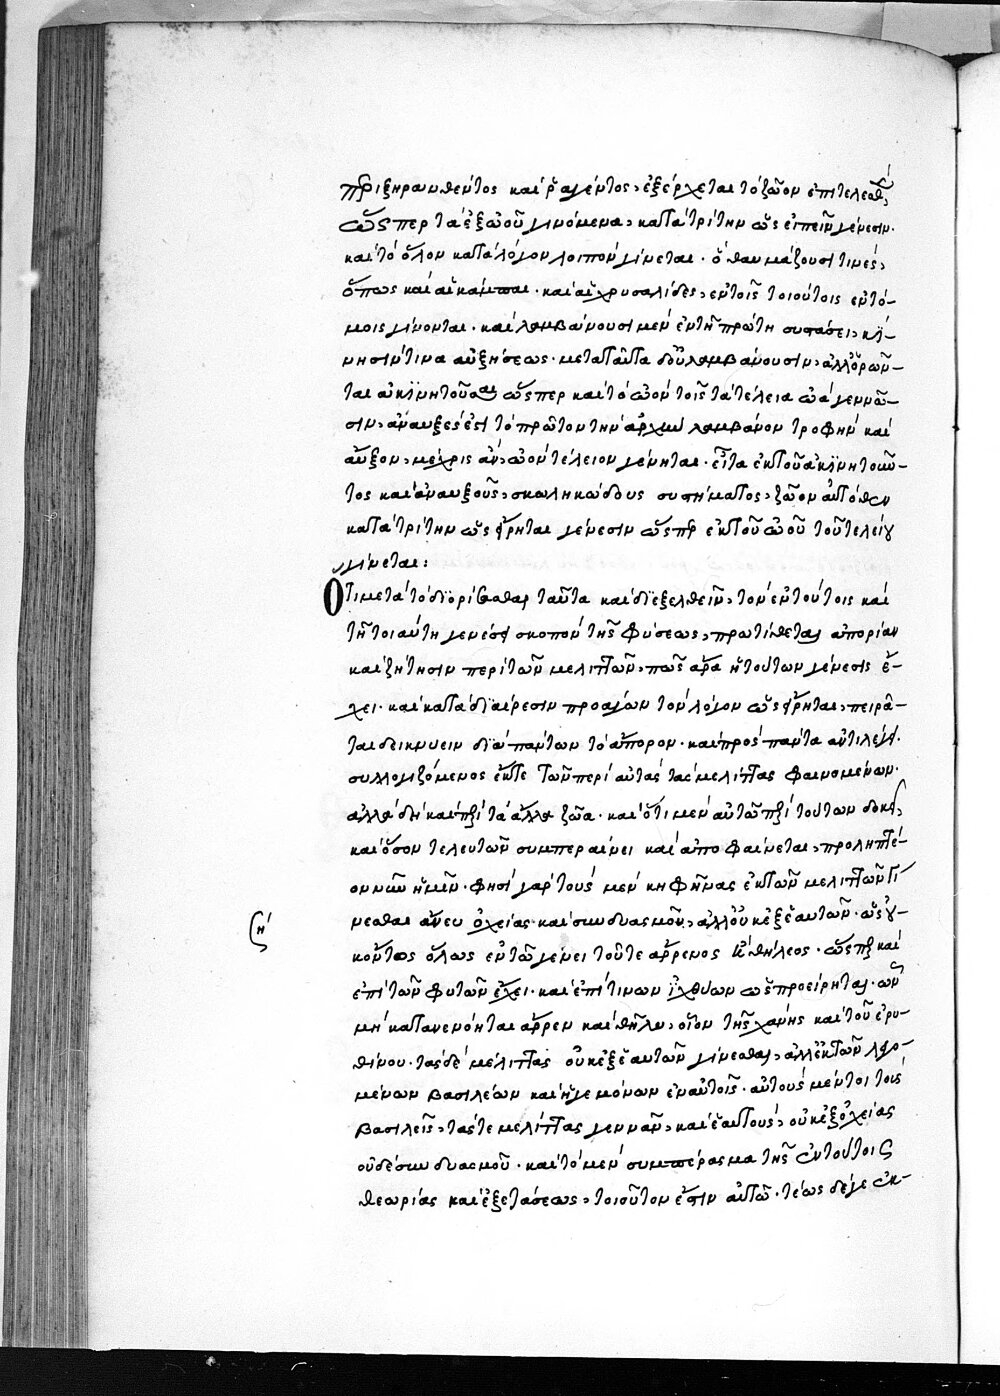 περιξηρανθέντος καὶ ῥαγέντος, ἐξέρχεται τὸ ζῶον ἐπιτελεσθὲν,
ὥσπερ τὰ ἐξ ὠοῦ γινόμενα, κατὰ τρίτην ὡς εἰπεῖν γένεσιν.
καὶ τὸ ὅλον κατὰ λόγον λοιπὸν γίνεται. ὃ θαυμάζουσί τινες,
ὅπως καὶ αἱ κάμπαι. καὶ αἱ χρυσαλίδες, ἐν τοῖς τοιούτοις ἐντό-
μοις γίνονται. καὶ λαμβάνουσι μὲν ἐν τῇ πρώτῃ συστάσει, κί-
νησίν τινα αὐξήσεως. μετὰ ταῦτα δ' οὐ λαμβάνουσιν, ἀλλ' ὁρῶν-
ται ἀκινητοῦσαι ὥσπερ καὶ τὸ ὠὸν τοῖς τὰ τέλεια ὠὰ γεννῶ-
σιν, ἀναυξές ἐστι τὸ πρῶτον τὴν ἀρχὴν λαμβάνον τροφὴν καὶ
αὖξον, μέχρις ἂν, ὠὸν τέλειον γένηται. εἶτα ἐκ τοῦ ἀκινητοῦν-
τος καὶ ἀναυξοῦς, σκωληκώδους συστήματος, ζῶον αὐτόθεν
κατὰ τρίτην ὡς εἴρηται γένεσιν ὥσπερ ἐκ τοῦ ὠοῦ τοῦ τελείου
γίνεται:
Ὅτι μετὰ τὸ διορίσασθαι ταῦτα καὶ διεξελθεῖν, τὸν ἐν τούτοις καὶ
τῇ τοιαύτῃ γενέσει σκοπὸν τῆς φύσεως, προτίθεται ἀπορίαν
καὶ ζήτησιν περὶ τῶν μελιττῶν, πῶς ἄρα ἡ τούτων γένεσις ἔ-
χει. καὶ κατὰ διαίρεσιν προαγὼν τὸν λόγον ὡς εἴρηται, πειρᾶ-
ται δεικνύειν διὰ πάντων τὸ ἄπορον. καὶ πρὸς πάντα ἀντιλέγει.
συλλογιζόμενος ἔκτε τῶν περὶ αὐτὰς τὰς μελίττας φαινομένων.
ἀλλὰ δὴ καὶ περὶ τὰ ἄλλα ζῶα. καὶ ὅτι μὲν αὐτῷ περὶ τούτων δοκεῖ,
καὶ ὅσον τελευτῶν συμπεραίνει καὶ ἀποφαίνεται, προληπτέ-
ον νῦν ἡμῖν. φησὶ γὰρ τοὺς μὲν κηφῆνας ἐκ τῶν μελιττῶν γί-
νεσθαι ἄνευ ὀχείας καὶ συνδυασμοῦ, ἀλλ' οὐκ ἐξ ἑαυτῶν. ὡς οὐ-
κ ὄντος ὅλως ἐν τῷ γένει τοῦτε ἄρρενος καὶ θήλεος. ὥσπερ καὶ
ἐπὶ τῶν φυτῶν ἔχει. καὶ ἐπί τινων ἰχθύων ὡς προείρηται. ὧν
μὴ κατανενόηται ἄρρεν καὶ θῆλυ, οἷον τῆς χάνης καὶ τοῦ ἐρυ-
θίνου. τὰς δὲ μελίττας οὐκ ἐξ ἑαυτῶν γίνεσθαι, ἀλλ' ἐκ τῶν λεγο-
μένων βασιλέων καὶ ἡγεμόνων ἐν αὐτοῖς. αὐτοὺς μέντοι τοὺς
βασιλεῖς, τάς τε μελίττας γεννᾶν, καὶ ἑαυτοὺς, οὐκ ἐξ ὀχείας
οὐδὲ συνδυασμοῦ. καὶ τὸ μὲν συμπέρασμα τῆς ἐν τούτοις
θεωρίας καὶ ἐξετάσεως, τοιοῦτόν ἐστιν αὐτῷ. τέως δέ γε ἐκ-